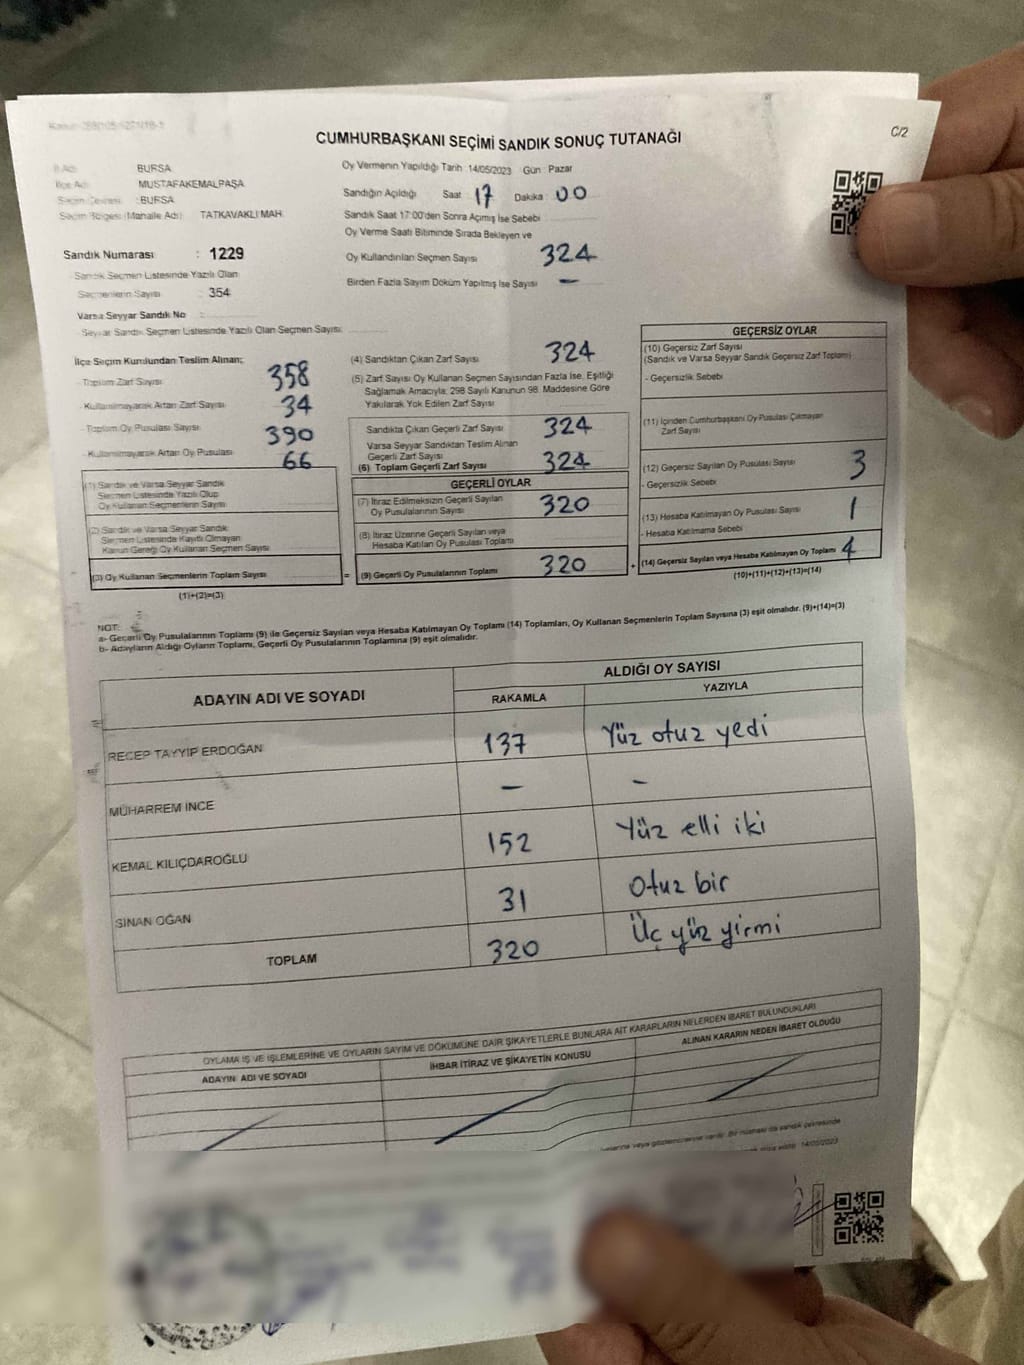 C/2
CUMHURBAŞKANI SEÇİMİ SANDIK SONUÇ TUTANAĞI
İl Adı BURSA
İlçe Adı MUSTAFAKEMALPAŞA
Seçim Çevresi : BURSA
Seçim Bölgesi (Mahalle Adı) TATKAVAKLI MAH.
Sandık Numarası : 1229
Sandık Seçmen Listesinde Yazılı Olan
Seçmenlerin Sayısı : 354
Varsa Seyyar Sandık No :
Seyyar Sandık Seçmen Listesinde Yazılı Olan Seçmen Sayısı:
Oy Vermenin Yapıldığı Tarih 14/05/2023 Gün : Pazar
Sandığın Açıldığı Saat 17 Dakika 00
Sandık Saat 17:00'den Sonra Açımış İse Sebebi
Oy Verme Saati Bitiminde Sırada Bekleyen ve
Oy Kullandırılan Seçmen Sayısı 324
Birden Fazla Sayım Döküm Yapılmış İse Sayısı —
İlçe Seçim Kurulundan Teslim Alınan;
- Toplam Zarf Sayısı 358
- Kullanılmayarak Artan Zarf Sayısı 34
- Toplam Oy Pusulası Sayısı 390
- Kullanılmayarak Artan Oy Pusulası 66
(1) Sandık ve Varsa Seyyar Sandık
Seçmen Listesinde Yazılı Olup
Oy Kullanan Seçmenlerin Sayısı
(2) Sandık ve Varsa Seyyar Sandık
Seçmen Listesinde Kayıtlı Olmayan
Kanun Gereği Oy Kullanan Seçmen Sayısı
(3) Oy Kullanan Seçmenlerin Toplam Sayısı
(1)+(2)=(3)
(4) Sandıktan Çıkan Zarf Sayısı 324
(5) Zarf Sayısı Oy Kullanan Seçmen Sayısından Fazla İse, Eşitliği
Sağlamak Amacıyla, 298 Sayılı Kanunun 98. Maddesine Göre
Yakılarak Yok Edilen Zarf Sayısı
Sandıkta Çıkan Geçerli Zarf Sayısı 324
Varsa Seyyar Sandıktan Teslim Alınan
Geçerli Zarf Sayısı
(6) Toplam Geçerli Zarf Sayısı 324
GEÇERLİ OYLAR
(7) İtiraz Edilmeksizin Geçerli Sayılan
Oy Pusulalarının Sayısı 320
(8) İtiraz Üzerine Geçerli Sayılan veya
Hesaba Katılan Oy Pusulası Toplamı
= (9) Geçerli Oy Pusulalarının Toplamı 320 +
GEÇERSİZ OYLAR
(10) Geçersiz Zarf Sayısı
(Sandık ve Varsa Seyyar Sandık Geçersiz Zarf Toplamı)
- Geçersizlik Sebebi
(11) İçinden Cumhurbaşkanı Oy Pusulası Çıkmayan
Zarf Sayısı
(12) Geçersiz Sayılan Oy Pusulası Sayısı 3
- Geçersizlik Sebebi
(13) Hesaba Katılmayan Oy Pusulası Sayısı 1
- Hesaba Katılmama Sebebi
(14) Geçersiz Sayılan veya Hesaba Katılmayan Oy Toplamı 4
(10)+(11)+(12)+(13)=(14)
NOT:
a- Geçerli Oy Pusulalarının Toplamı (9) ile Geçersiz Sayılan veya Hesaba Katılmayan Oy Toplamı (14) Toplamları, Oy Kullanan Seçmenlerin Toplam Sayısına (3) eşit olmalıdır. (9)+(14)=(3)
b- Adayların Aldığı Oyların Toplamı, Geçerli Oy Pusulalarının Toplamına (9) eşit olmalıdır.
ADAYIN ADI VE SOYADI ALDIĞI OY SAYISI
RAKAMLA YAZIYLA
RECEP TAYYİP ERDOĞAN 137 Yüz otuz yedi
MUHARREM İNCE — -
KEMAL KILIÇDAROĞLU 152 Yüz elli iki
SİNAN OĞAN 31 Otuz bir
TOPLAM 320 Üç yüz yirmi
OYLAMA İŞ VE İŞLEMLERİNE VE OYLARIN SAYIM VE DÖKÜMÜNE DAİR ŞİKAYETLERLE BUNLARA AİT KARARLARIN NELERDEN İBARET BULUNDUKLARI
ADAYIN ADI VE SOYADI İHBAR İTİRAZ VE ŞİKAYETİN KONUSU ALINAN KARARIN NEDEN İBARET OLDUĞU
veya gözlemcilerine verilir. Bir nüshası da sandık çevresinde
14/05/2023